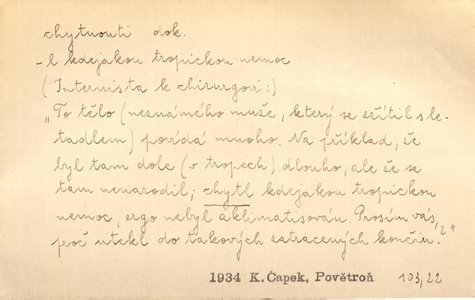 chytnouti dok.
- l kdejakou tropickou nemoc
(Internista k chirurgovi:)
„To tělo (neznámého muže, který se zřítil s le-
tadlem) povídá mnoho. Na příklad, že
byl tam dole (v tropech) dlouho, ale že se
tam nenarodil; chytl kdejakou tropickou
nemoc, ergo nebyl aklimatisován. Prosím vás,
proč utekl do takových zatracených končin?"
1934 K.Čapek, Povětroň 103,22